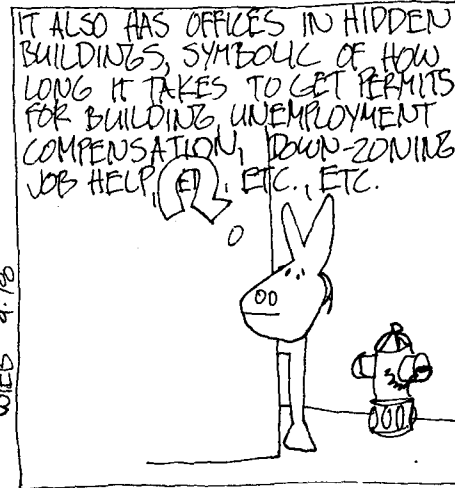 IT ALSO HAS OFFICES IN HIDDEN
BUILDINGS, SYMBOLIC OF HOW
LONG IT TAKES TO GET PERMITS
FOR BUILDING, UNEMPLOYMENT
COMPENSATION, DOWN-ZONING
JOB HELP, ETC., ETC.